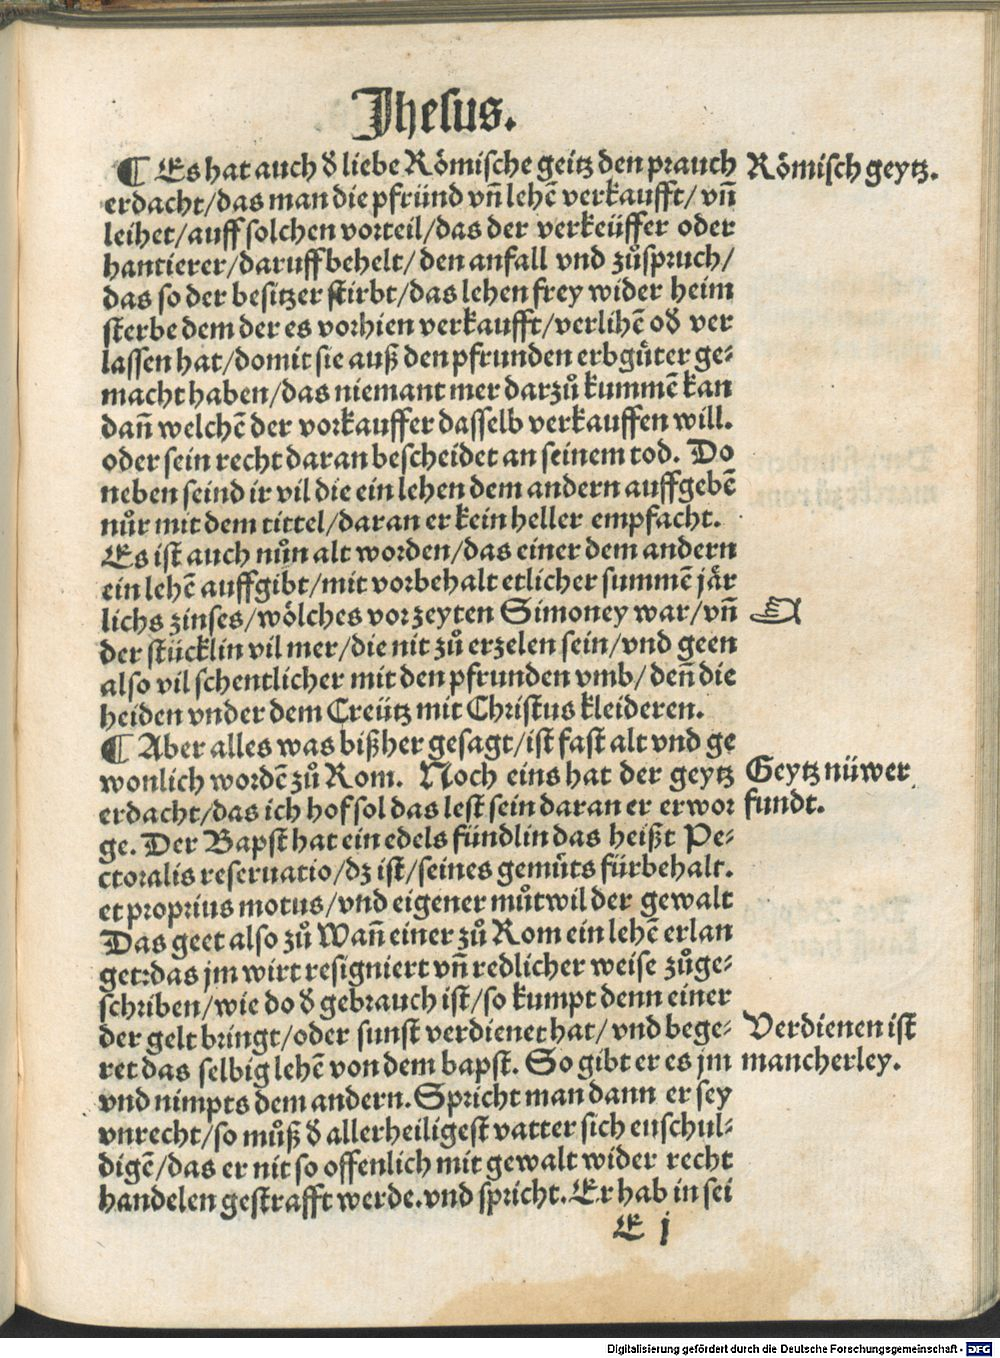 Jhesus.
¶ Es hat auch đ liebe Römische geitz den prauch
Römisch geytz.
erdacht/das man die pfründ vñ lehẽ verkaufft/ vñ
leihet/auff solchen vorteil/das der verkeüffer oder
hantierer/daruff behelt/ den anfall vnd zůspruch/
das so der besitzer stirbt/das lehen frey wider heim
sterbe dem der es vorhien verkaufft/verlihẽ ođ ver
lassen hat/domit sie auß den pfrunden erbgůter ge⸗
macht haben/das niemant mer darzů kummẽ kan
dañ welchẽ der vorkauffer dasselb verkauffen will.
oder sein recht daran bescheidet an seinem tod. Do
neben seind ir vil die ein lehen dem andern auffgebẽ
nůr mit dem tittel/daran er kein heller empfacht.
Es ist auch nůn alt worden/das einer dem andern
ein lehẽ auffgibt/mit vorbehalt etlicher summẽ jår
lichs zinses/wölches vor zeyten Simoney war/vñ
☜
der stücklin vil mer/die nit zů erzelen sein/vnd geen
also vil schentlicher mit den pfrunden vmb/ deñ die
heiden vnder dem Creütz mit Christus kleideren.
¶ Aber alles was bißher gesagt/ist fast alt vnd ge
wonlich wordẽ zů Rom. Noch eins hat der geytz
Geytz nüwer
erdacht/das ich hof sol das lest sein daran er erwor
fundt.
ge. Der Bapst hat ein edels fündlin das heißt Pe⸗
ctoralis reseruatio/dz ist/seines gemůts fürbehalt.
et proprius motus/vnd eigener můtwil der gewalt
Das geet also zů Wañ einer zů Rom ein lehẽ erlan
get:das jm wirt resigniert vñ redlicher weise zůge⸗
schriben/wie do đ gebrauch ist/so kumpt denn einer
der gelt bringt/oder sunst verdienet hat/ vnd bege⸗
Verdienen ist
ret das selbig lehẽ von dem bapst. So gibt er es jm
mancherley.
vnd nimpts dem andern. Spricht man dann er sey
vnrecht/so můß đ allerheiligest vatter sich enschul⸗
digẽ/das er nit so offenlich mit gewalt wider recht
handelen gestrafft werde. vnd spricht. Er hab in sei
E j
Digitalisierung gefördert durch die Deutsche Forschungsgemeinschaft - DFG